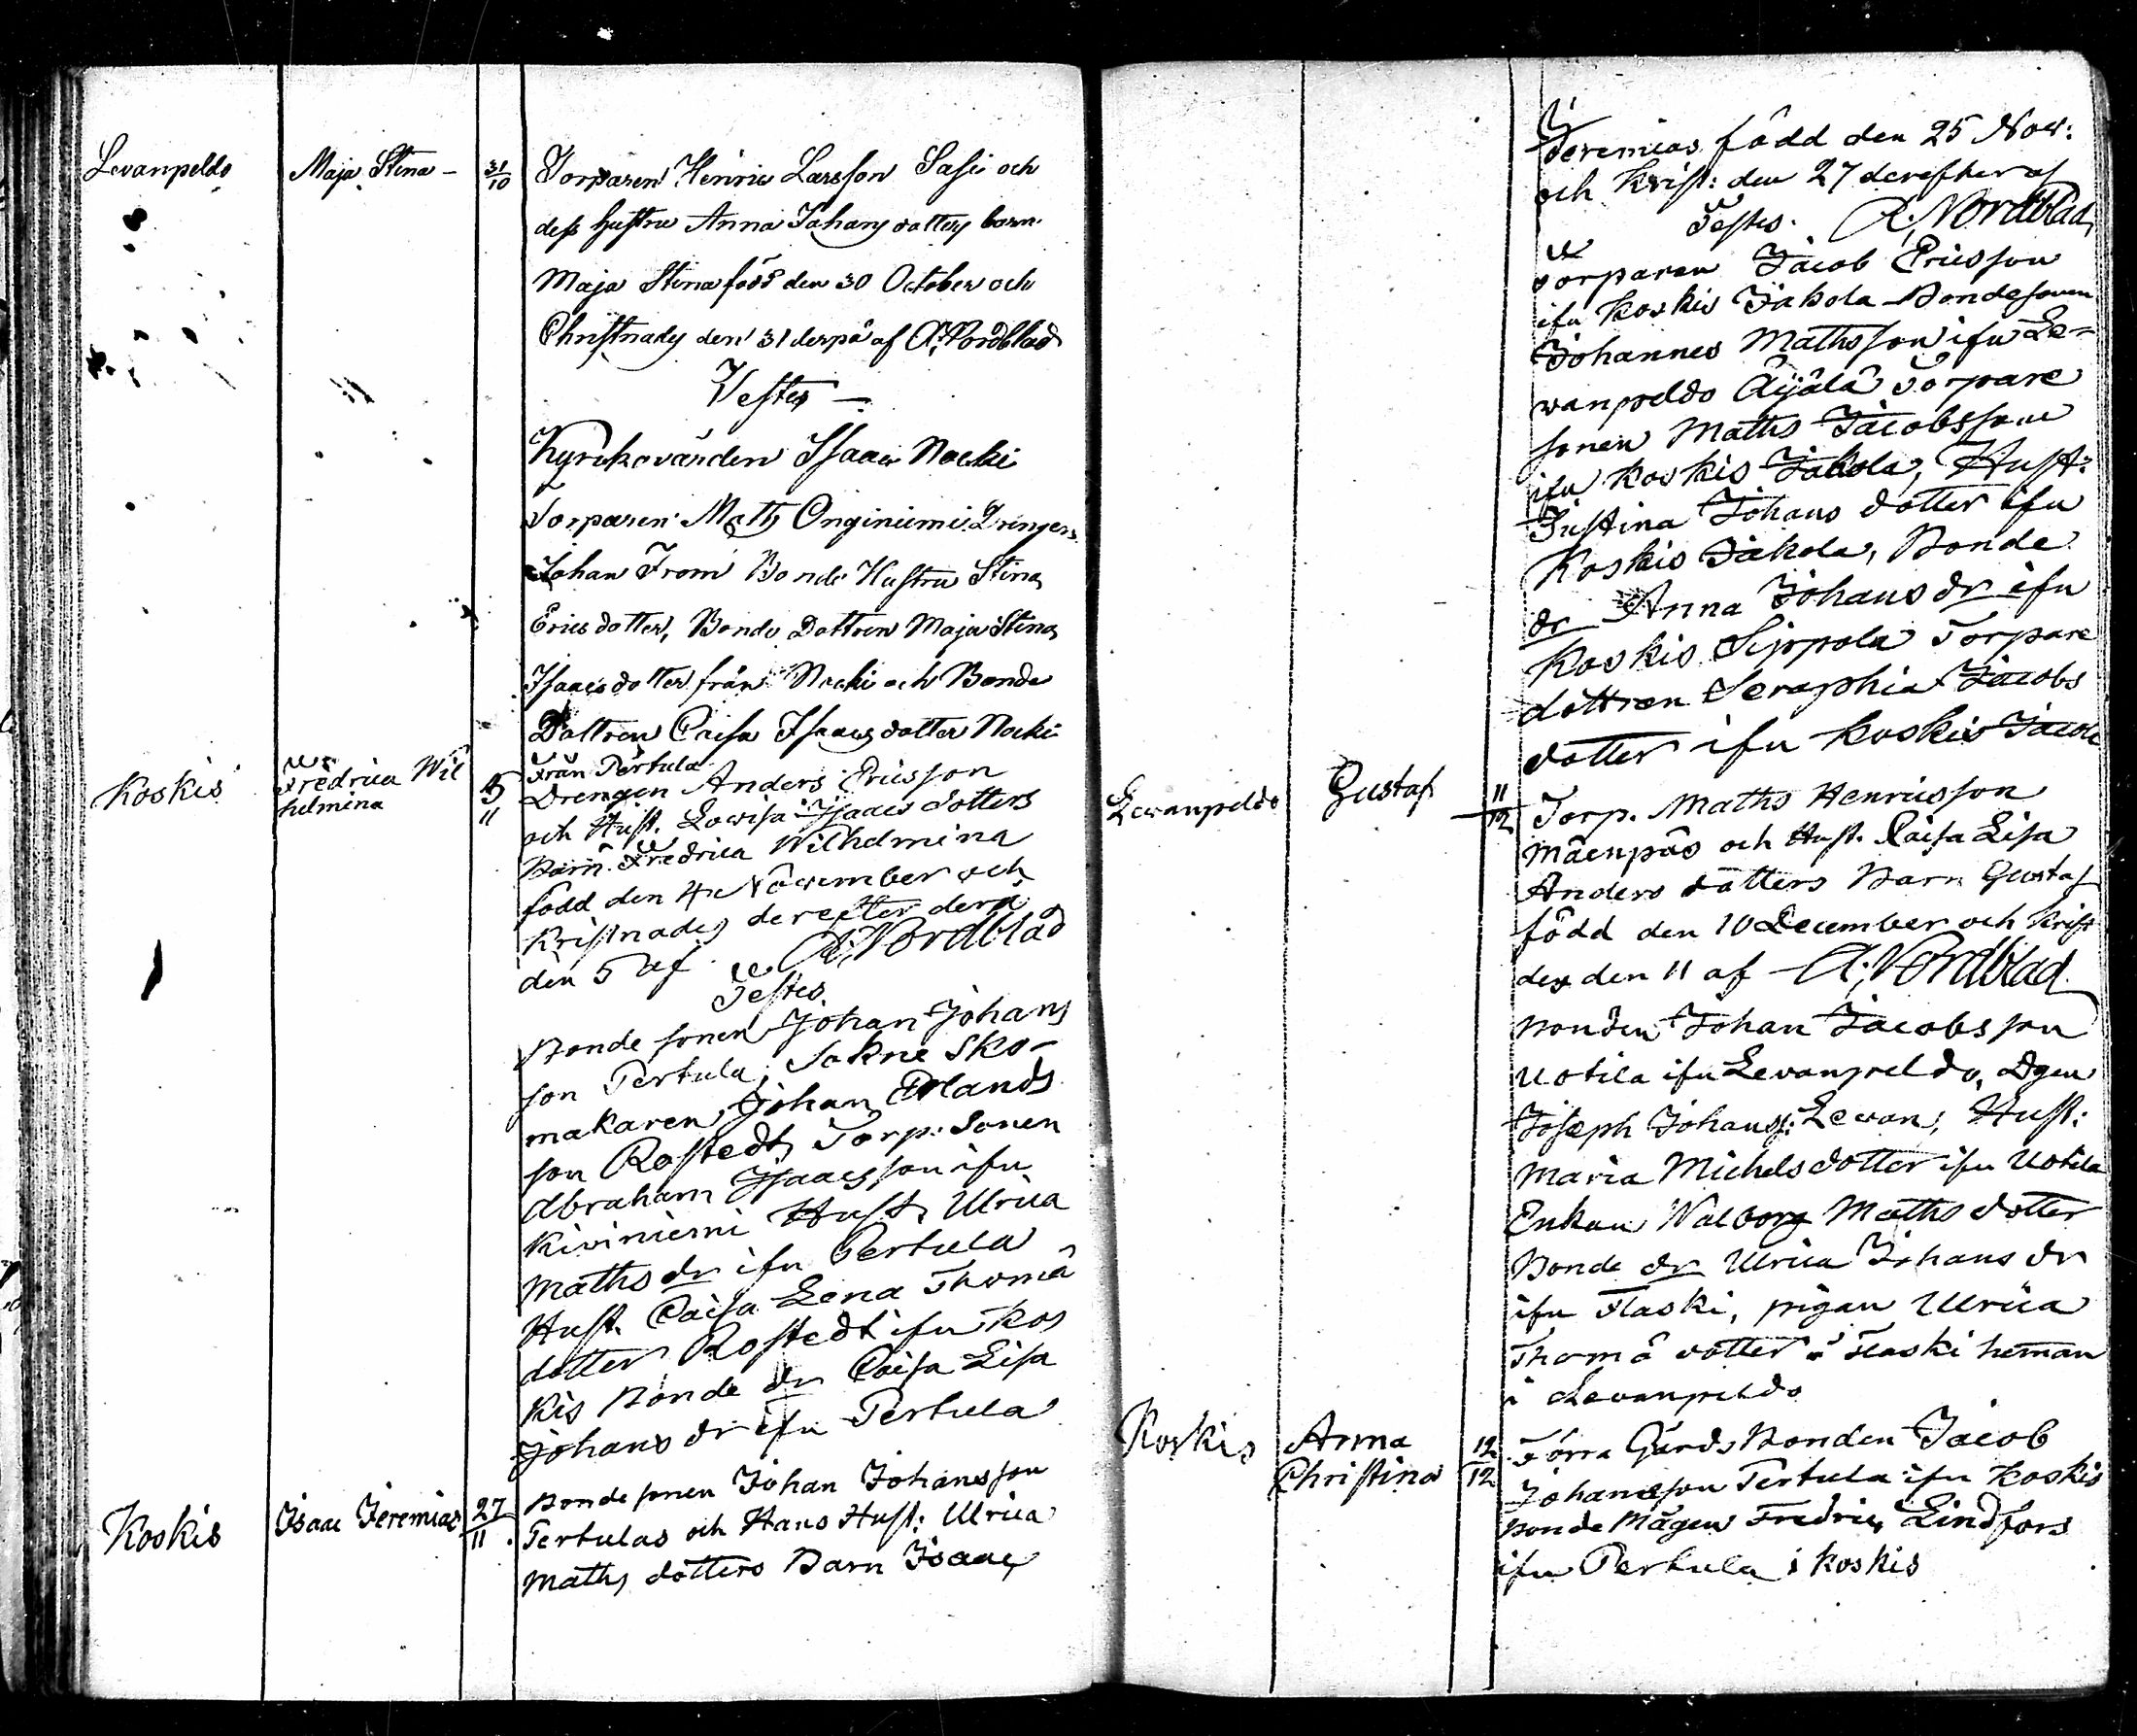 Levanpeldo
Maja Stina –
31/10
Torparen Henric Larsson Sasii och
dess hustru Anna Johans dotters barn
Maja Stina född den 30 October och
Christnades den 31 derpå af A. Nordblad
Testes –
Kyrckovärden Isaac Nocki
Torparen Maths Onginiemi Drengen
Johan From Bonde Hustru Stina
Ericsdotter, Bonde Dottren Maja Stina
Isaacsdotter från Nocki och Bonde
Dottren Caisa Isaacsdotter Nocki
Koskis
Fredrica Wil
helmina
5/11
Från Pertula
Drengen Anders Ericsson
och Hust. Lowisa Isaacs dotters
Barn Fredrica Wilhelmina
född den 4 November och
kristnades derefter derå
den 5 af A. Nordblad
Testes
Bonde sonen Johan Johans
son Pertula, Sokne Sko-
makaren Johan Erlands
son Rostedt, Torp: Sonen
Abraham Isaacsson ifn
Kiviniemi Hust. Ulrica
Maths dr ifn Pertula
Hust. Caisa Lena Thomæ
dotter Rostedt ifn Kos
kis Bonde dr Caisa Lisa
Johans dr ifn Pertula
Koskis
Isaac Jeremias
27/11
Bonde sonen Johan Johansson
Pertulas och Hans Hust: Ulrica
Maths dotters Barn Isaac
Jeremias född den 25 Nov:
och Krist: den 27 derefter af
Testes. A. Nordblad
Torparen Jacob Ericsson
ifn Koskis Jakola Bondesonen
Johannes Mathsson ifn Le-
wanpeldo Äijälä Torpare
sonen Maths Jacobsson
ifn Koskis Jakola, Hust:
Justina Johans dotter ifn
Koskis Jakola, Bonde
dr Anna Johans dr ifn
Koskis Sippola Torpare
dottren Seraphia Jacobs
dotter ifn Koskis
Lewanpeldo
Gustaf
11/12
Torp. Maths Henricsson
Mäenpää och Hust. Caisa Lisa
Anders dotters Barn Gustaf
född den 10 December och Krist
des den 11 af A. Nordblad
Bonden Johan Jacobsson
Uotila ifn Levanpeldo, Dgen
Joseph Johanss: Lewan, Hust:
Maria Michelsdotter ifn Uotila
Enkan Walborg Maths dotter
Bonde dr Ulrica Johans dr
ifn Flaski, pigan Ulrica
Thomæ dotter å Flaski heman
i Levanpeldo
Koskis
Anna
Christina
12/12
Förra Gårds Bonden Jacob
Johansson Pertula ifn Koskis
Bonde Mågen Fredric Lindfors
ifn Pertula i Koskis